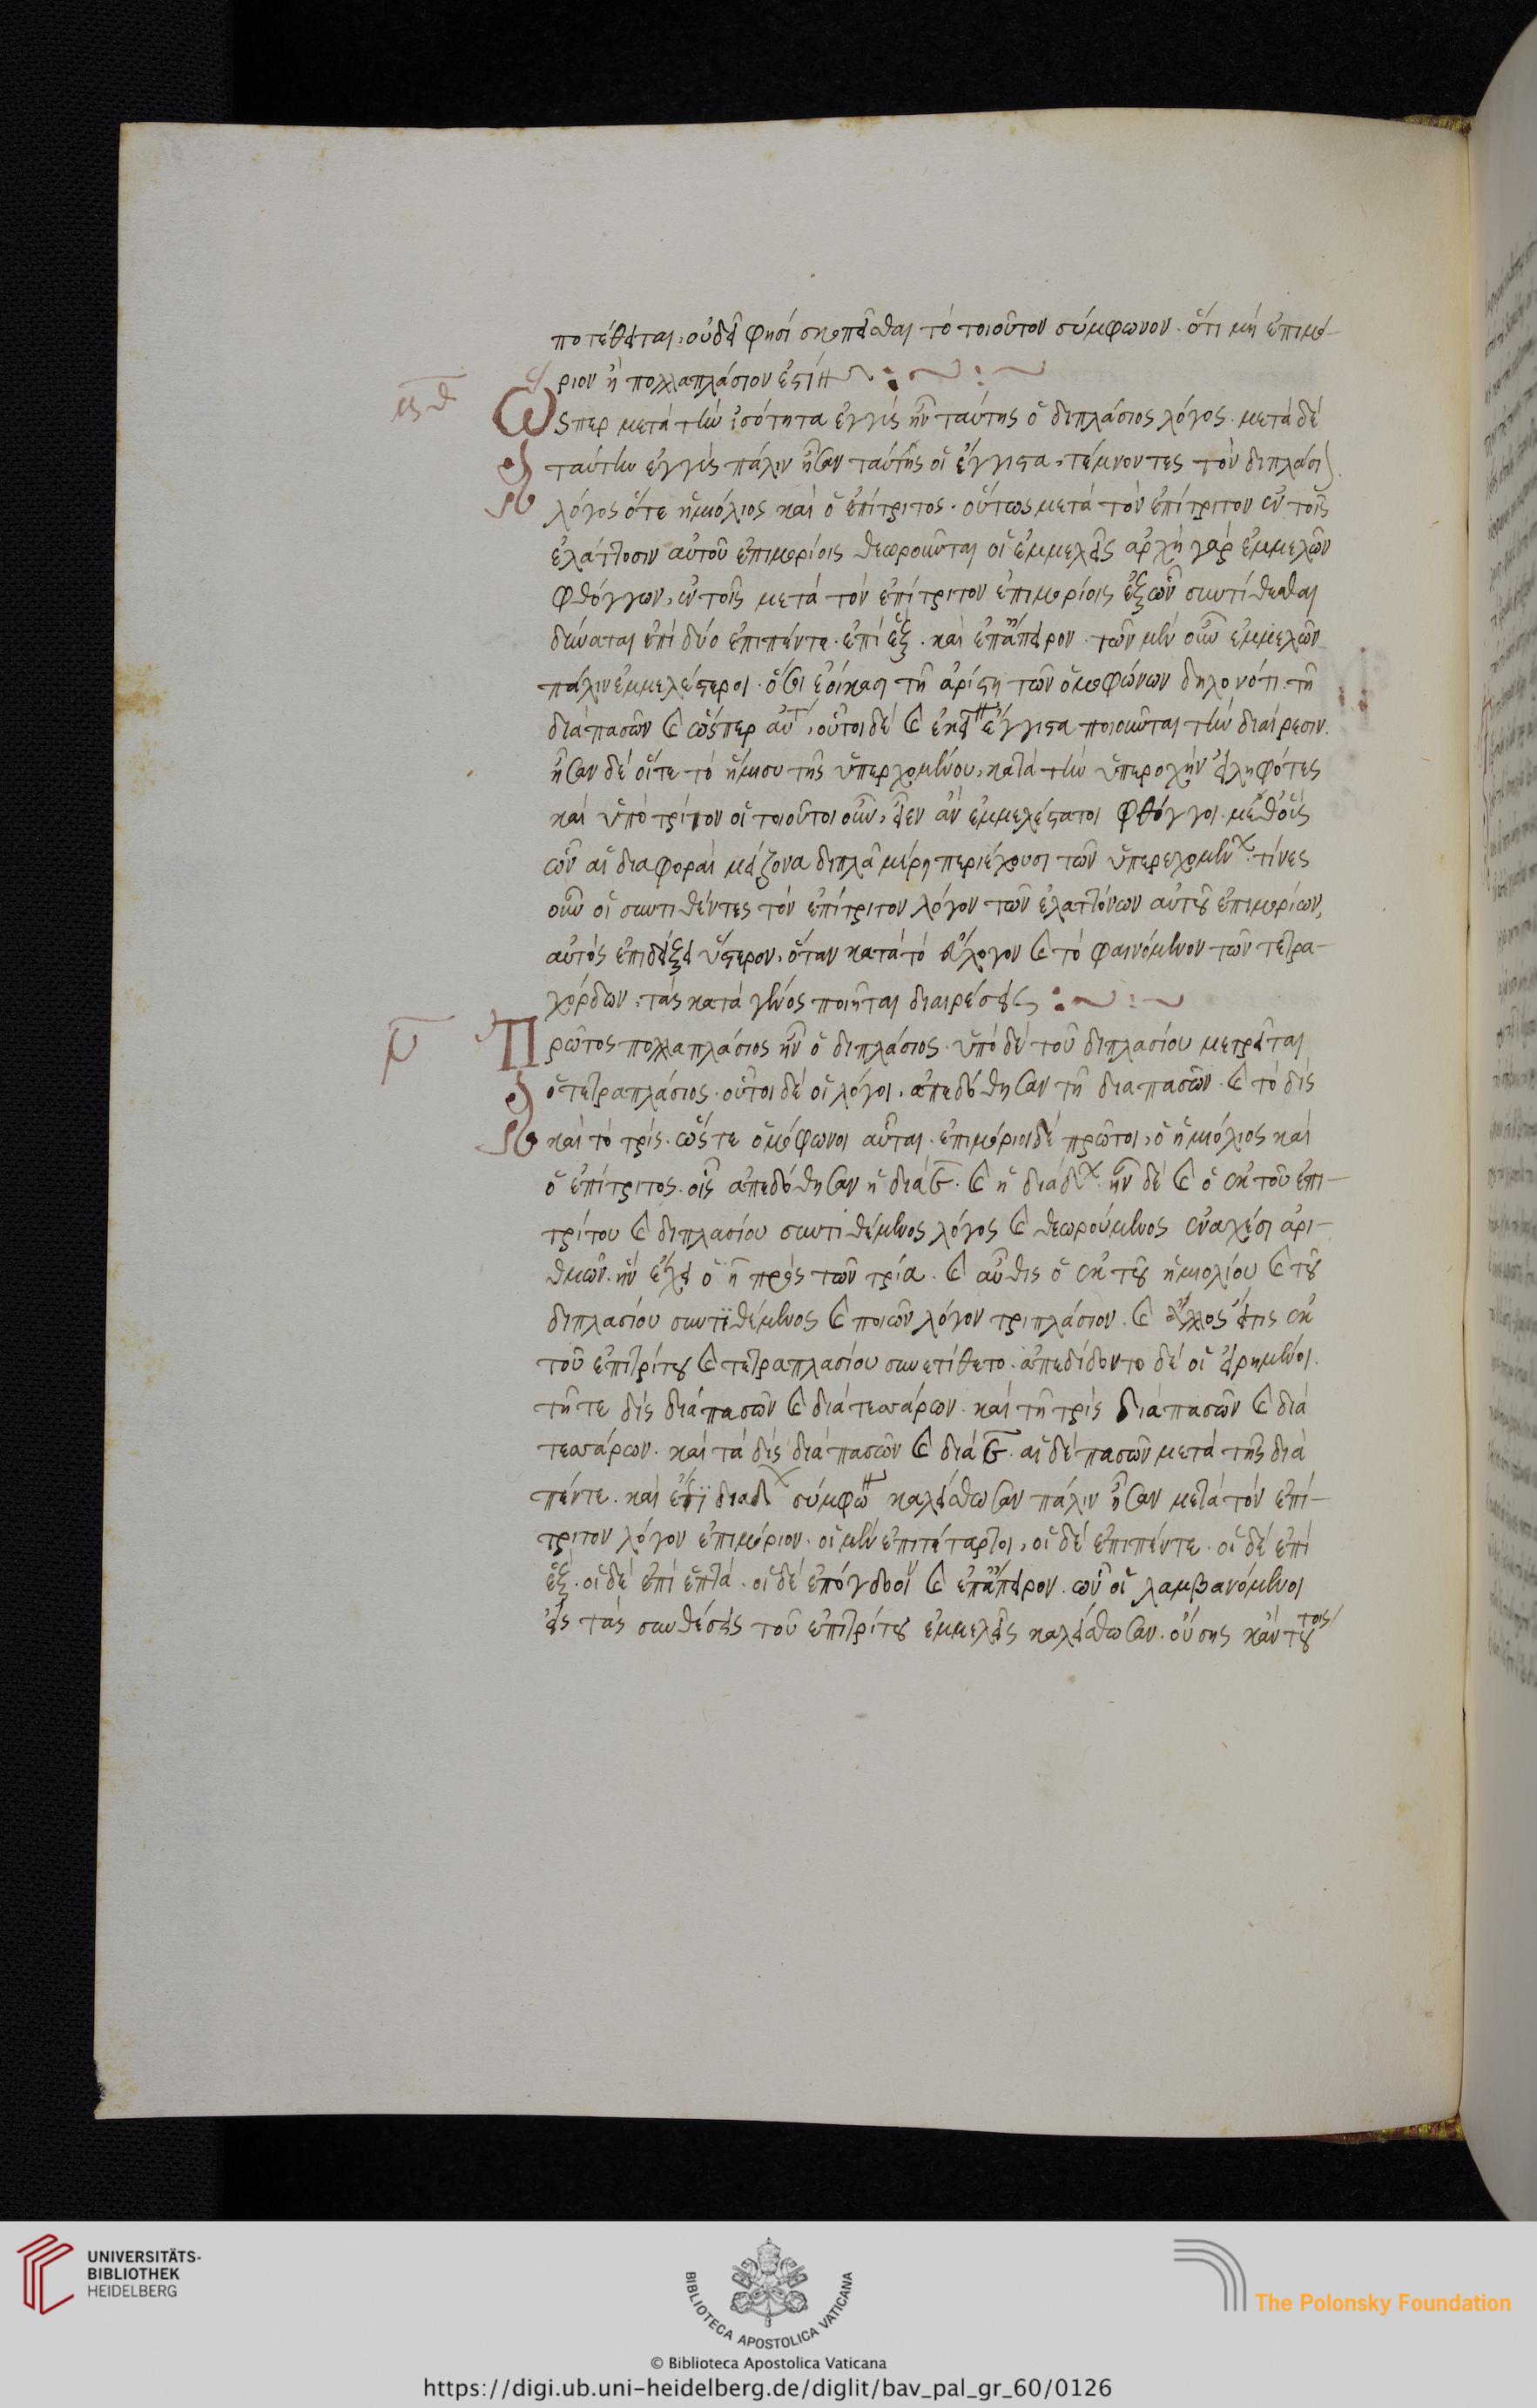 ποτέθειται, οὐδεῖ φησί σκοπεῖσθαι τὸ τοιοῦτον σύμφωνον. ὅτι μὴ ἐπιμό-
ριον ἢ πολλαπλάσιον ἐστίν
μθ
Ὥσπερ μετὰ τὴν ἰσότητα ἐγγὺς ἦν ταύτης ὁ διπλάσιος λόγος. μετὰ δὲ
ταύτην ἐγγὺς πάλιν ἦσαν ταύτης οἱ ἔγγιστα, τέμνοντες τὸν διπλάσι
λόγος ὅτε ἡμιόλιος καὶ ὁ ἐπίτριτος. οὕτως μετὰ τὸν ἐπίτριτον ἐν τοῖς
ἐλάττοσιν αὐτοῦ ἐπιμορίοις θεωροῦνται οἱ ἐμμελεῖς ἀρχὴ γὰρ ἐμμελῶν
φθόγγων, ἐν τοῖς μετὰ τὸν ἐπίτριτον ἐπιμορίοις ἐξ ὧν συντίθεσθαι
δύναται ἐπὶ δύο ἐπιπέντε. ἐπὶ ἕξ. καὶ ἐπάπειρον. τῶν μὲν οὖν ἐμμελῶν
πάλιν ἐμμελέστεροι. ὅσοι ἐοίκασι τῇ ἀρίστῃ τῶν ὁμοφώνων δηλονότι τῇ
διαπασῶν καὶ ὥσπερ αὐτ, οὗτοι δὲ καὶ ἐκεῖν ἔγγιστα ποιοῦνται τὴν διαίρεσιν.
ἦσαν δὲ οἵτε τὸ ἥμισυ τῆς ὑπερχομένου, κατὰ τὴν ὑπεροχὴν εἰληφότες
καὶ ὑπὸ τρίτον οἱ τοιοῦτοι οὖν, εἶεν ἂν ἐμμελέστατοι φθόγγοι. μεθ' οὓς
ὧν αἱ διαφοραὶ μείζονα διπλᾶ μέρη περιέχουσι τῶν ὑπερεχομένων. τίνες
οὖν οἱ συντιθέντες τὸν ἐπίτριτον λόγον τῶν ἐλαττόνων αὐτοῦ ἐπιμορίων,
αὐτὸς ἐπιδείξει ὕστερον, ὅταν κατὰ τὸ εὔλογον καὶ τὸ φαινόμενον τῶν τετρα-
χόρδων, τὰς κατὰ γένος ποιῆται διαιρέσεις
ν
Πρῶτος πολλαπλάσιος ἦν ὁ διπλάσιος. ὑπὸ δὲ τοῦ διπλασίου μετρεῖται
ὁ τετραπλάσιος. οὗτοι δὲ οἱ λόγοι, ἀπεδόθησαν τῇ διαπασῶν. καὶ τὸ δὶς
καὶ τὸ τρίς. ὥστε ὁμόφωνοι αὗται. ἐπιμόριοι δὲ πρῶτοι, ὁ ἡμιόλιος καὶ
ὁ ἐπίτριτος. οἷς ἀπεδόθησαν ἡ διὰ ε. καὶ ἡ διὰ δ. ἦν δὲ καὶ ὁ ἐκ τοῦ ἐπι-
τρίτου καὶ διπλασίου συντιθέμενος λόγος καὶ θεωρούμενος ἐν σχέσει ἀρι-
θμῶν. ἣν ἔχει ὁ η πρὸς τῶν τρία. καὶ αὖθις ὁ ἐκ τοῦ ἡμιολίου καὶ τοῦ
διπλασίου συντιθέμενος καὶ ποιῶν λόγον τριπλάσιον. καὶ ἄλλος εἴτις ἐκ
τοῦ ἐπιτρίτου καὶ τετραπλασίου συνετίθετο. ἀπεδίδοντο δὲ οἱ εἰρημένοι.
τῇ τε δὶς διὰ πασῶν καὶ διὰ τεσσάρων. καὶ τῇ τρὶς διὰ πασῶν καὶ διὰ
τεσσάρων. καὶ τὰ δὶς διὰ πασῶν καὶ διὰ ε. αἱ δὲ πασῶν μετὰ τῆς διὰ
πέντε. καὶ διὰ δ σύμφων καλείσθωσαν πάλιν ἦσαν μετὰ τὸν ἐπί-
τριτον λόγον ἐπιμόριον. οἱ μὲν ἐπιτέταρτοι, οἱ δὲ ἐπιπέντε. οἱ δὲ ἐπὶ
ἕξ. οἱ δὲ ἐπὶ ἑπτά. οἱ δὲ ἐπόγδοοι καὶ ἐπάπειρον. ὧν οἱ λαμβανόμενοι
εἰς τὰς συνθέσεις τοῦ ἐπιτρίτου ἐμμελεῖς καλείσθωσαν. οὔσης κἀν τού
τοις
UNIVERSITÄTS-
BIBLIOTHEK
HEIDELBERG
BIBLIOTECA APOSTOLICA VATICANA
The Polonsky Foundation
© Biblioteca Apostolica Vaticana
https://digi.ub.uni-heidelberg.de/diglit/bav_pal_gr_60/0126